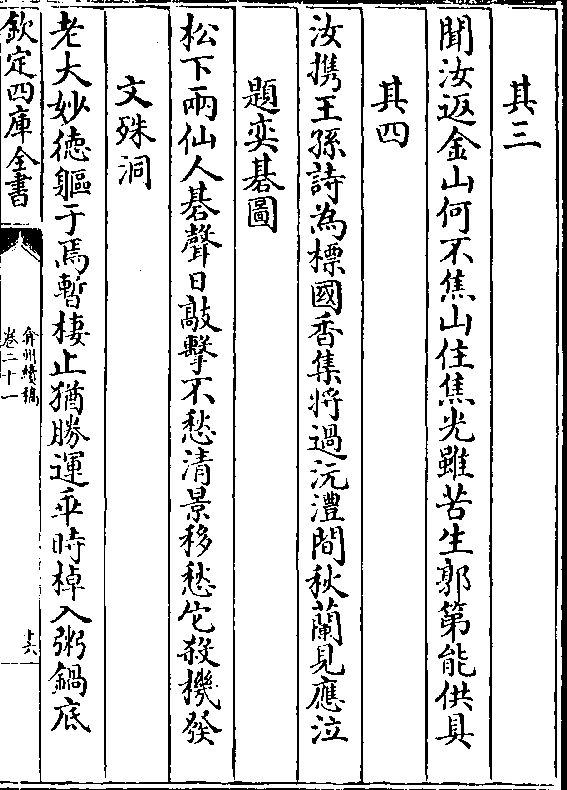 其三
聞汝返金山何不焦山住焦光雖苦生郭第能供具
其四
汝携王孫詩為標國香集將過沅澧間秋蘭見應泣
題奕碁圖
松下兩仙人碁聲日敲擊不愁清景移愁他殺機發
文殊洞
老大妙徳軀于焉暫棲止猶勝運乖時棹入粥鍋底
欽定四庫全書
弇州續稿
卷二十一
十六